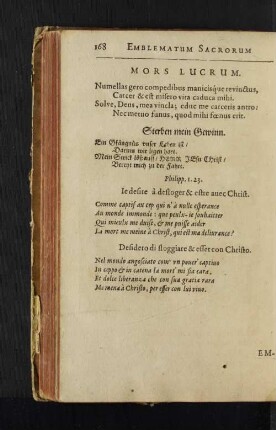 168 EMBLEMATUM SACRORUM
MORS LUCRUM.
Numellas gero compedibus manicisque revinctus,
Carcer & est misero vita caduca mihi.
Solve, Deus, mea vincla; educ me carceris antro:
Nec metuo funus, quod mihi fœnus erit.
Sterben mein Gewinn.
Ein Gfängnis unser Leben ist;
Darinn wir ligen hart.
Mein Strick HERR JEsu Christ/
mich zu der Fahrt.
Philipp. 1. 23.
Ie desire à desloger & estre avec Christ.
Comme captif au cep qui n'à nulle esperance
Au monde immonde: que peulx-ie souhaitter
Qui mieulx me duise, & me puisse aider
La mort me meine à Christ, qui est ma delivrance?
Desidero di sloggiare & esser con Christo.
Nel mondo angosciato com' un pover' captivo
In ceppo & in catena la mort' mi sia cara,
E dolce liberanza che con sua gratia rara
Me mena à Christo, per esser con lui vivo.
EM-